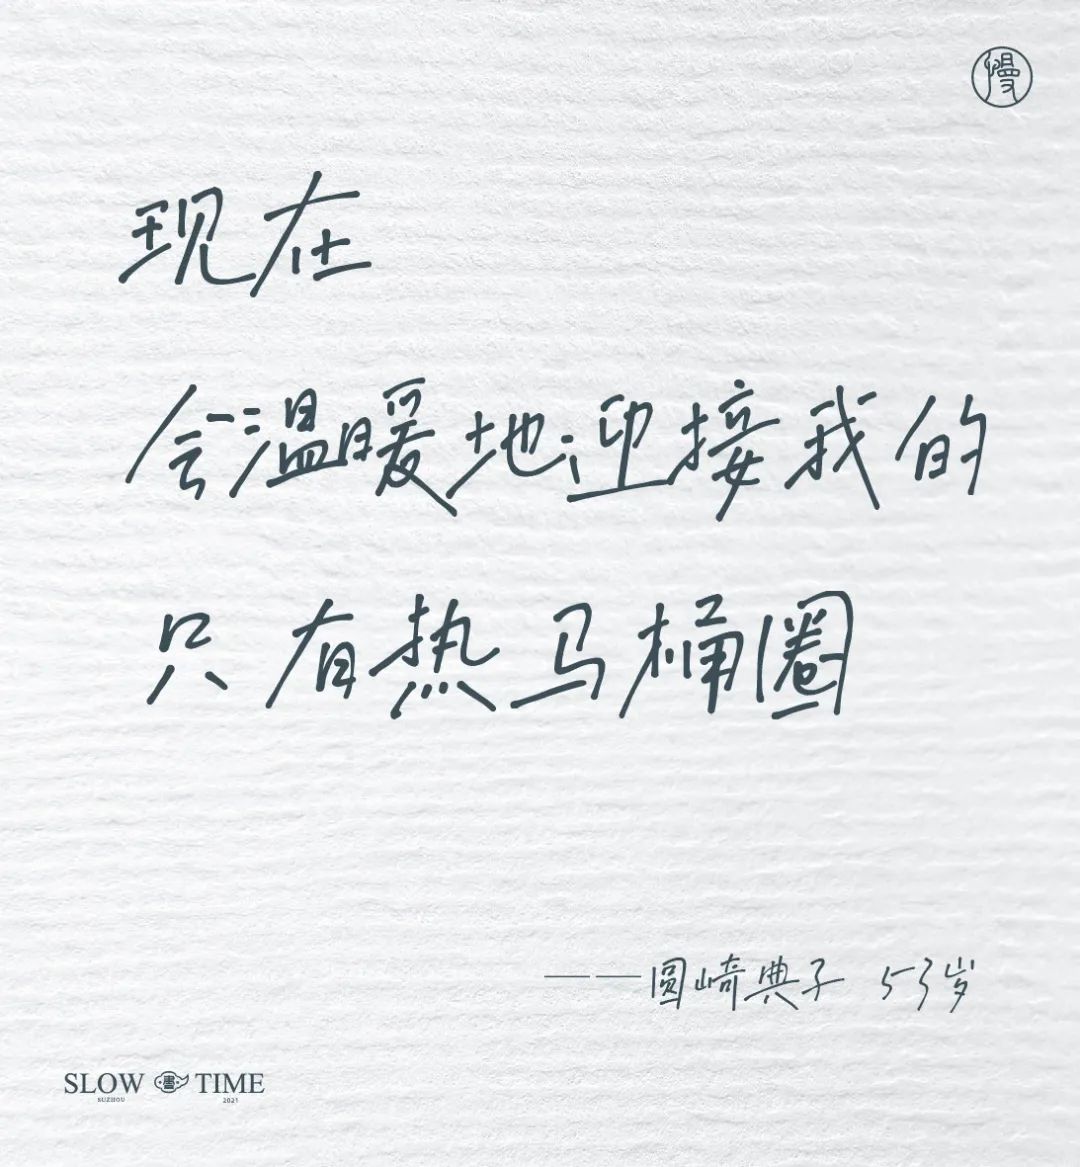 慢
现在
会温暖地迎接我的
只有热马桶圈
——圆崎典子 53岁
SLOW TIME
SUZHOU 2021